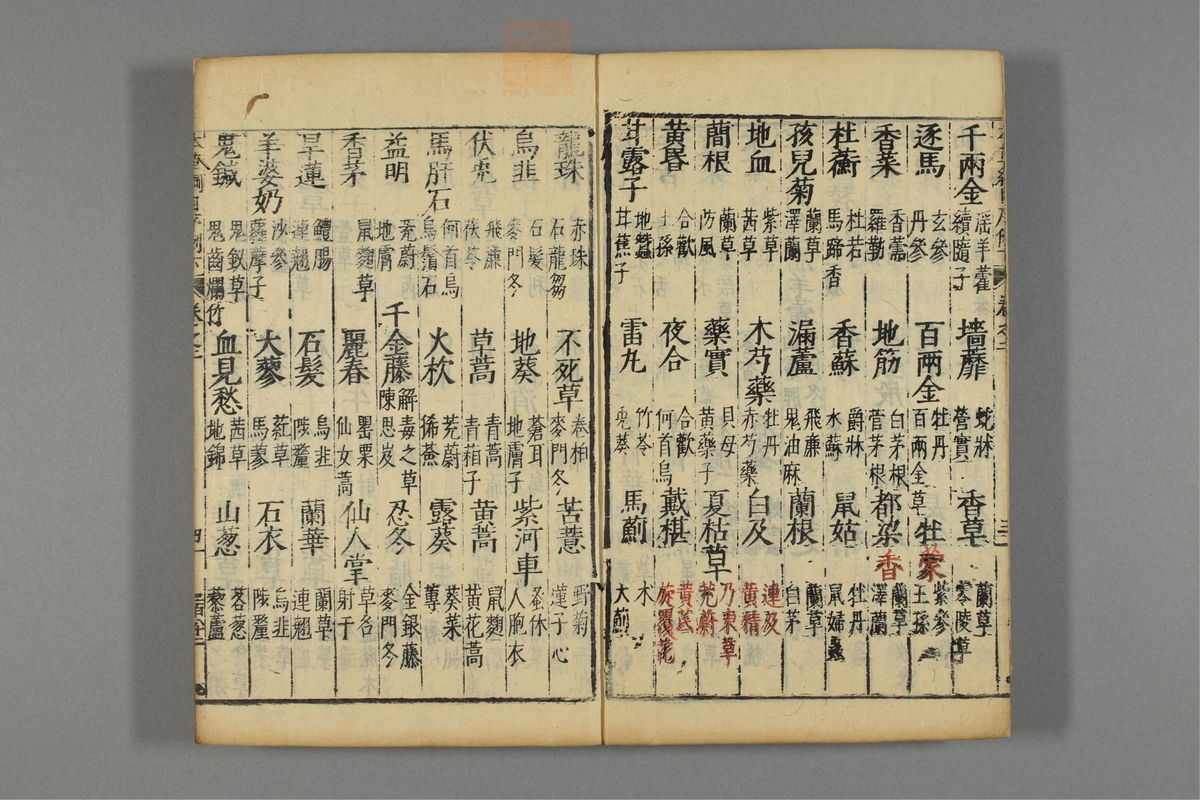 千兩金 淫羊藿 續隨子 墻蘼 蛇牀 營實 香草 蘭草 零陵草
逐馬 玄參 丹參 百兩金 牡丹 百兩金草 牡蒙 紫參 王孫
香菜 香薷 羅勒 地筋 白茅根 菅茅根 都梁香 蘭草 澤蘭
杜蘅 杜若 馬蹄香 香蘇 爵牀 水蘇 鼠姑 牡丹 鼠婦蟲
孩兒菊 蘭草 澤蘭 漏蘆 飛廉 鬼油麻 蘭根 蘭草 白茅
地血 紫草 茜草 木芍藥 牡丹 赤芍藥 白及 連及 黃精
蕳根 蘭草 防風 藥實 貝母 黃藥子 夏枯草 乃東草 茺蔚
黃昏 合歡 王孫 夜合 合歡 何首烏 戴椹 黃芪 旋覆花
甘露子 地蠶 甘蕉子 雷丸 竹苓 兎葵 馬薊 木 大薊
龍珠 赤珠 石龍芻 不死草 卷柏 麥門冬 苦薏 野菊 蓮子心
烏韭 石髮 麥門冬 地葵 蒼耳 地膚子 紫河車 蚤休 人胞衣
伏兎 飛廉 茯苓 草蒿 青蒿 青葙子 黃蒿 鼠麴 黃花蒿
馬肝石 何首烏 烏鬚石 火杴 茺蔚 豨薟 露葵 葵菜 蓴
益明 茺蔚 地膚 千金藤 解毒之草 陳思岌 忍冬 金銀藤 麥門冬
香茅 鼠麴草 麗春 罌粟 仙女蒿 仙人掌 草名 射干
旱蓮 鱧腸 連翹 石髮 烏韭 陟釐 蘭華 蘭草 連翹
羊婆奶 沙參 蘿藦子 大蓼 葒草 馬蓼 石衣 烏韭 陟釐
鬼鍼 鬼釵草 鬼齒爛竹 血見愁 茜草 地錦 山葱 茖葱 藜蘆